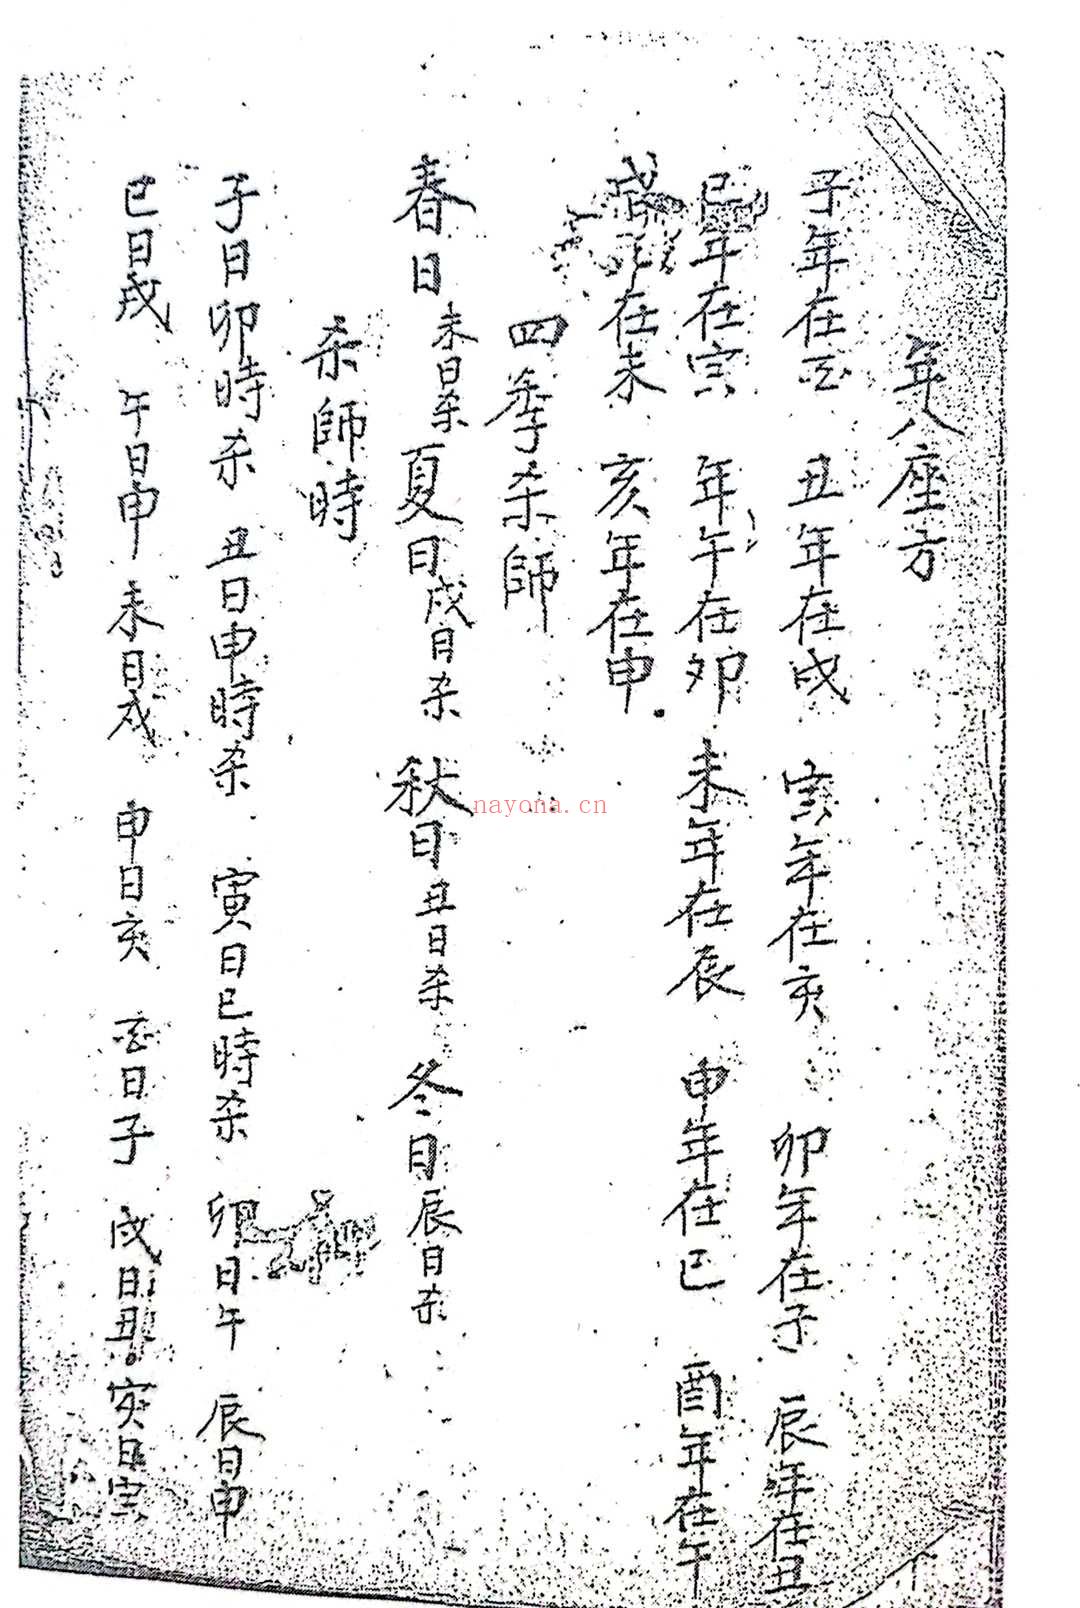 年八座方
子年在丣 丑年在戌 寅年在亥 卯年在子 辰年在丑
巳年在寅 年午在卯 未年在辰 申年在巳 酉年在午
戌年在未 亥年在申
四季杀師
春日未日杀 夏日戌日杀 秋日丑日杀 冬日辰日杀
杀師時
子日卯時杀 丑日申時杀 寅日巳時杀 卯日午 辰日申
巳日戌 午日申 未日戌 申日亥 丣日子 戌日丑。亥日寅
nayona.cn